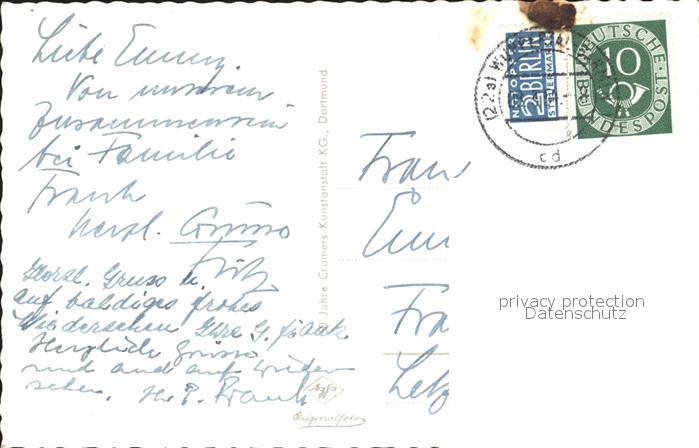 Liebe Emmy.
Von unserem
Zusammensein
bei Familie
Frank
herzl. Grüsse
Fritz
Herzl. Gruss u.
auf baldiges frohes
Wiedersehen Ihre G. Frank.
Herzliche Grüsse
und auf Wieder
sehen. H. P. Frank
Jahre Cramers Kunstanstalt KG., Dortmund
Agfa
Originalfoto
Frau
Emm
Fra
NOTOPFER
2 BERLIN
STEUERMARKE
DEUTSCHE
10
BUNDESPOST
(22a)
cd
privacy protection
Datenschutz